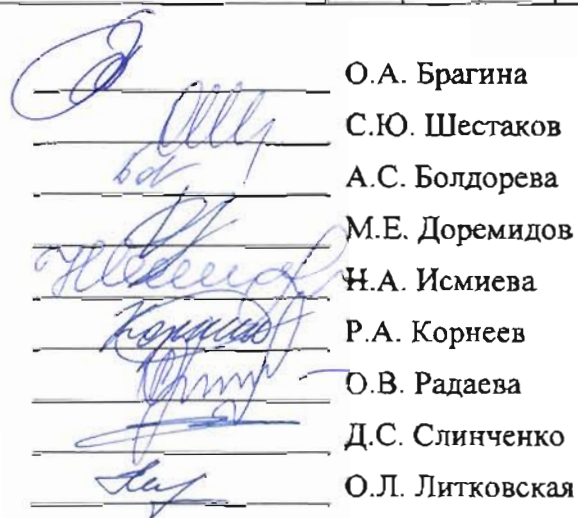 О.А. Брагина
С.Ю. Шестаков
А.С. Болдорева
М.Е. Доремидов
Н.А. Исмиева
Р.А. Корнеев
О.В. Радаева
Д.С. Слинченко
О.Л. Литковская